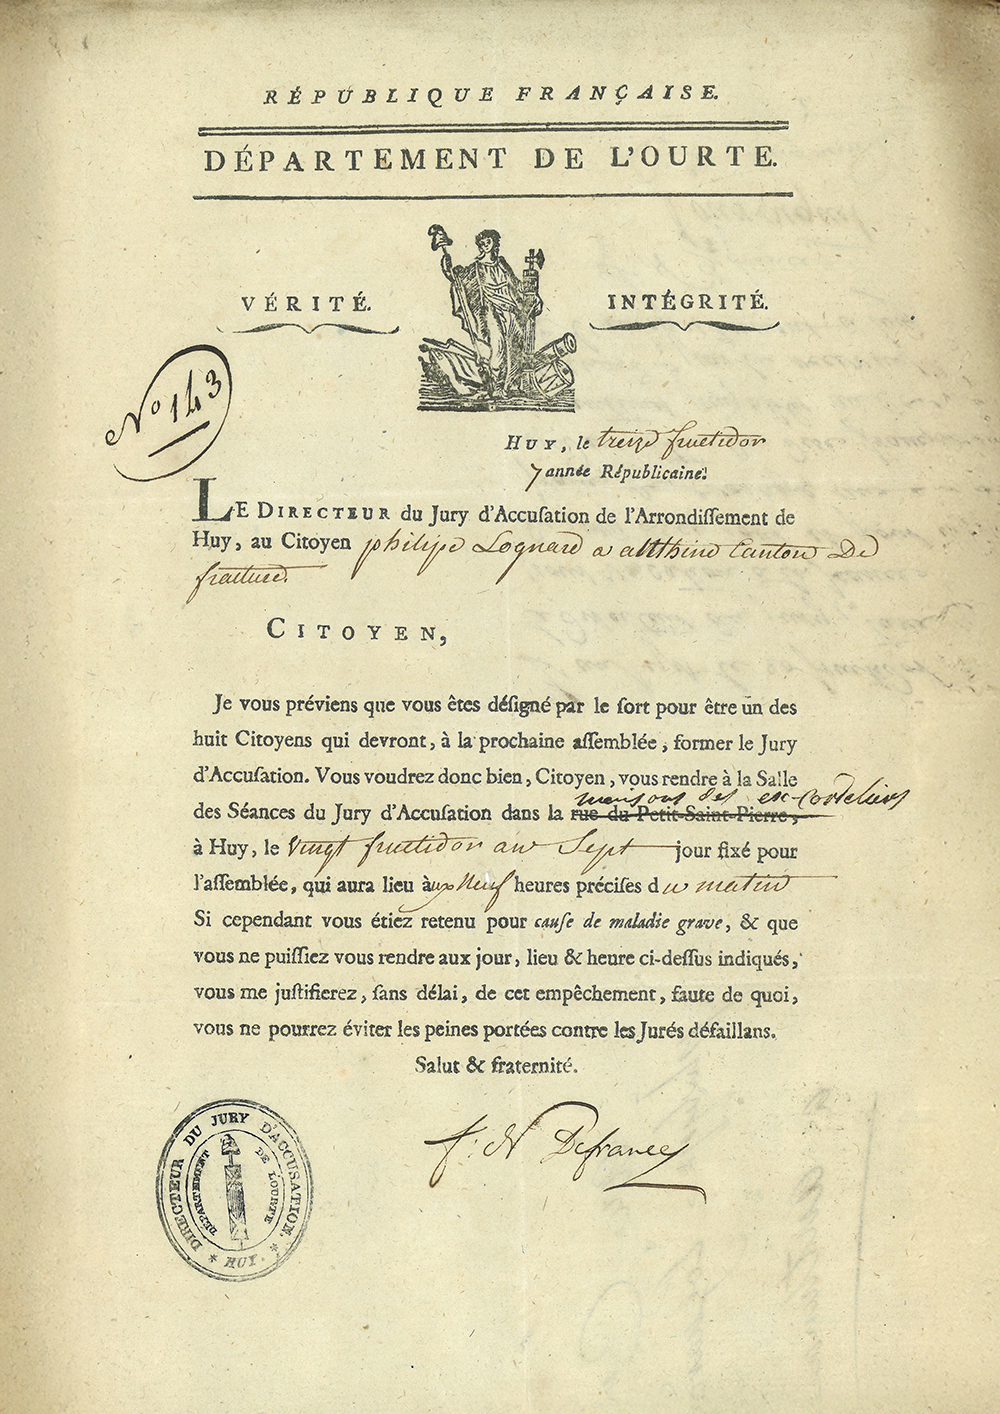 RÉPUBLIQUE FRANÇAISE.
DÉPARTEMENT DE L'OURTE.
VÉRITÉ. INTÉGRITÉ.
No 143
HUY, le treize fructidor
7 année Républicaine.
LE DIRECTEUR du Jury d'Accuſation de l'Arrondiſſement de
Huy, au Citoyen philipe Lognard a atthine Canton De
fraiture.
CITOYEN,
Je vous préviens que vous êtes déſigné par le ſort pour être un des
huit Citoyens qui devront, à la prochaine aſſemblée, former le Jury
d'Accuſation. Vous voudrez donc bien, Citoyen, vous rendre à la Salle
maison des ex-Cordeliers
des Séances du Jury d'Accuſation dans la rue du Petit-Saint-Pierre,
à Huy, le Vingt fructidor an Sept jour fixé pour
l'aſſemblée, qui aura lieu àux Neuf heures préciſes du matin
Si cependant vous étiez retenu pour cauſe de maladie grave, & que
vous ne puiſſiez vous rendre aux jour, lieu & heure ci-deſſus indiqués,
vous me juſtifierez, ſans délai, de cet empêchement, faute de quoi,
vous ne pourrez éviter les peines portées contre les Jurés défaillans.
Salut & fraternité.
f: N Defrance
DIRECTEUR DU JURY D'ACCUSATION.
DÉPARTEMENT DE LOURTE
* HUY. *